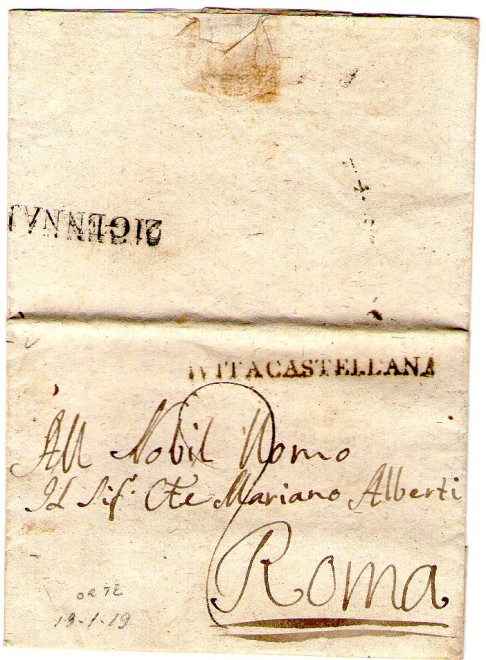 21GENNAJ
IVITACASTELLANA
All Nobil Uomo
Il Sig.r Cte Mariano Alberti
Roma
ORTE
19-1-19